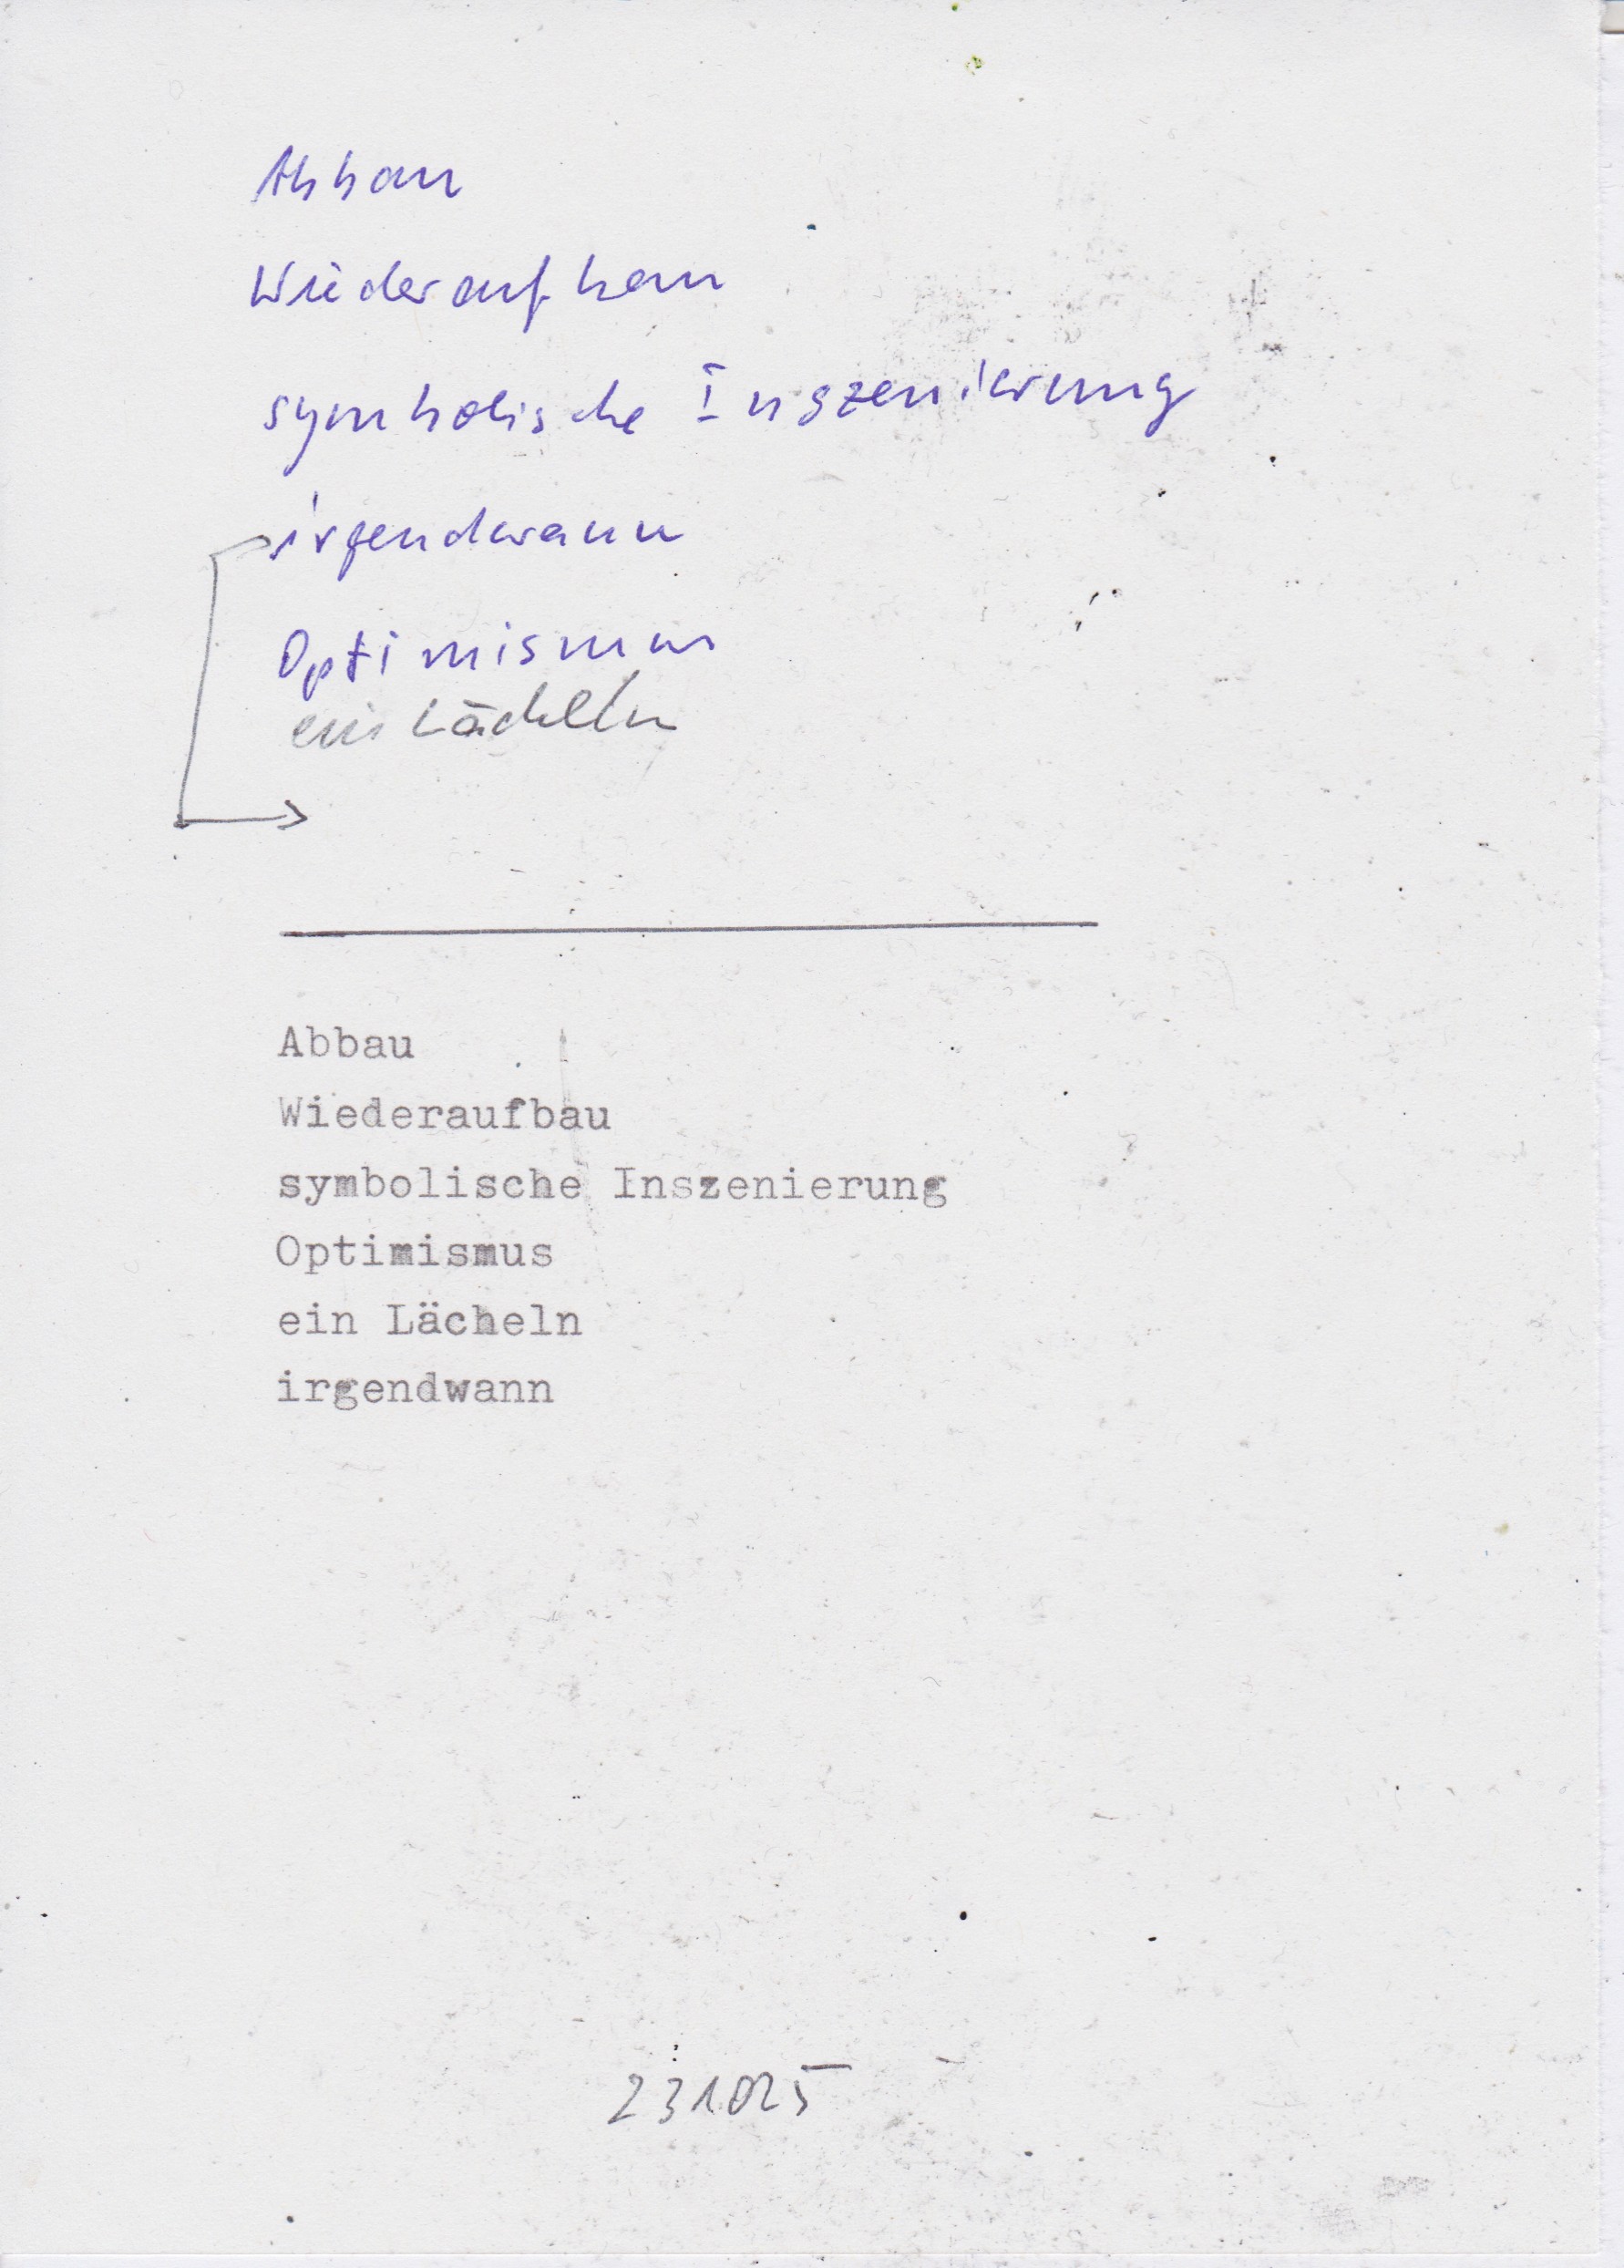 Abbau
Wiederaufbau
symbolische Inszenierung
irgendwann
Optimismus
ein Lächeln
Abbau
Wiederaufbau
symbolische Inszenierung
Optimismus
ein Lächeln
irgendwann
231025